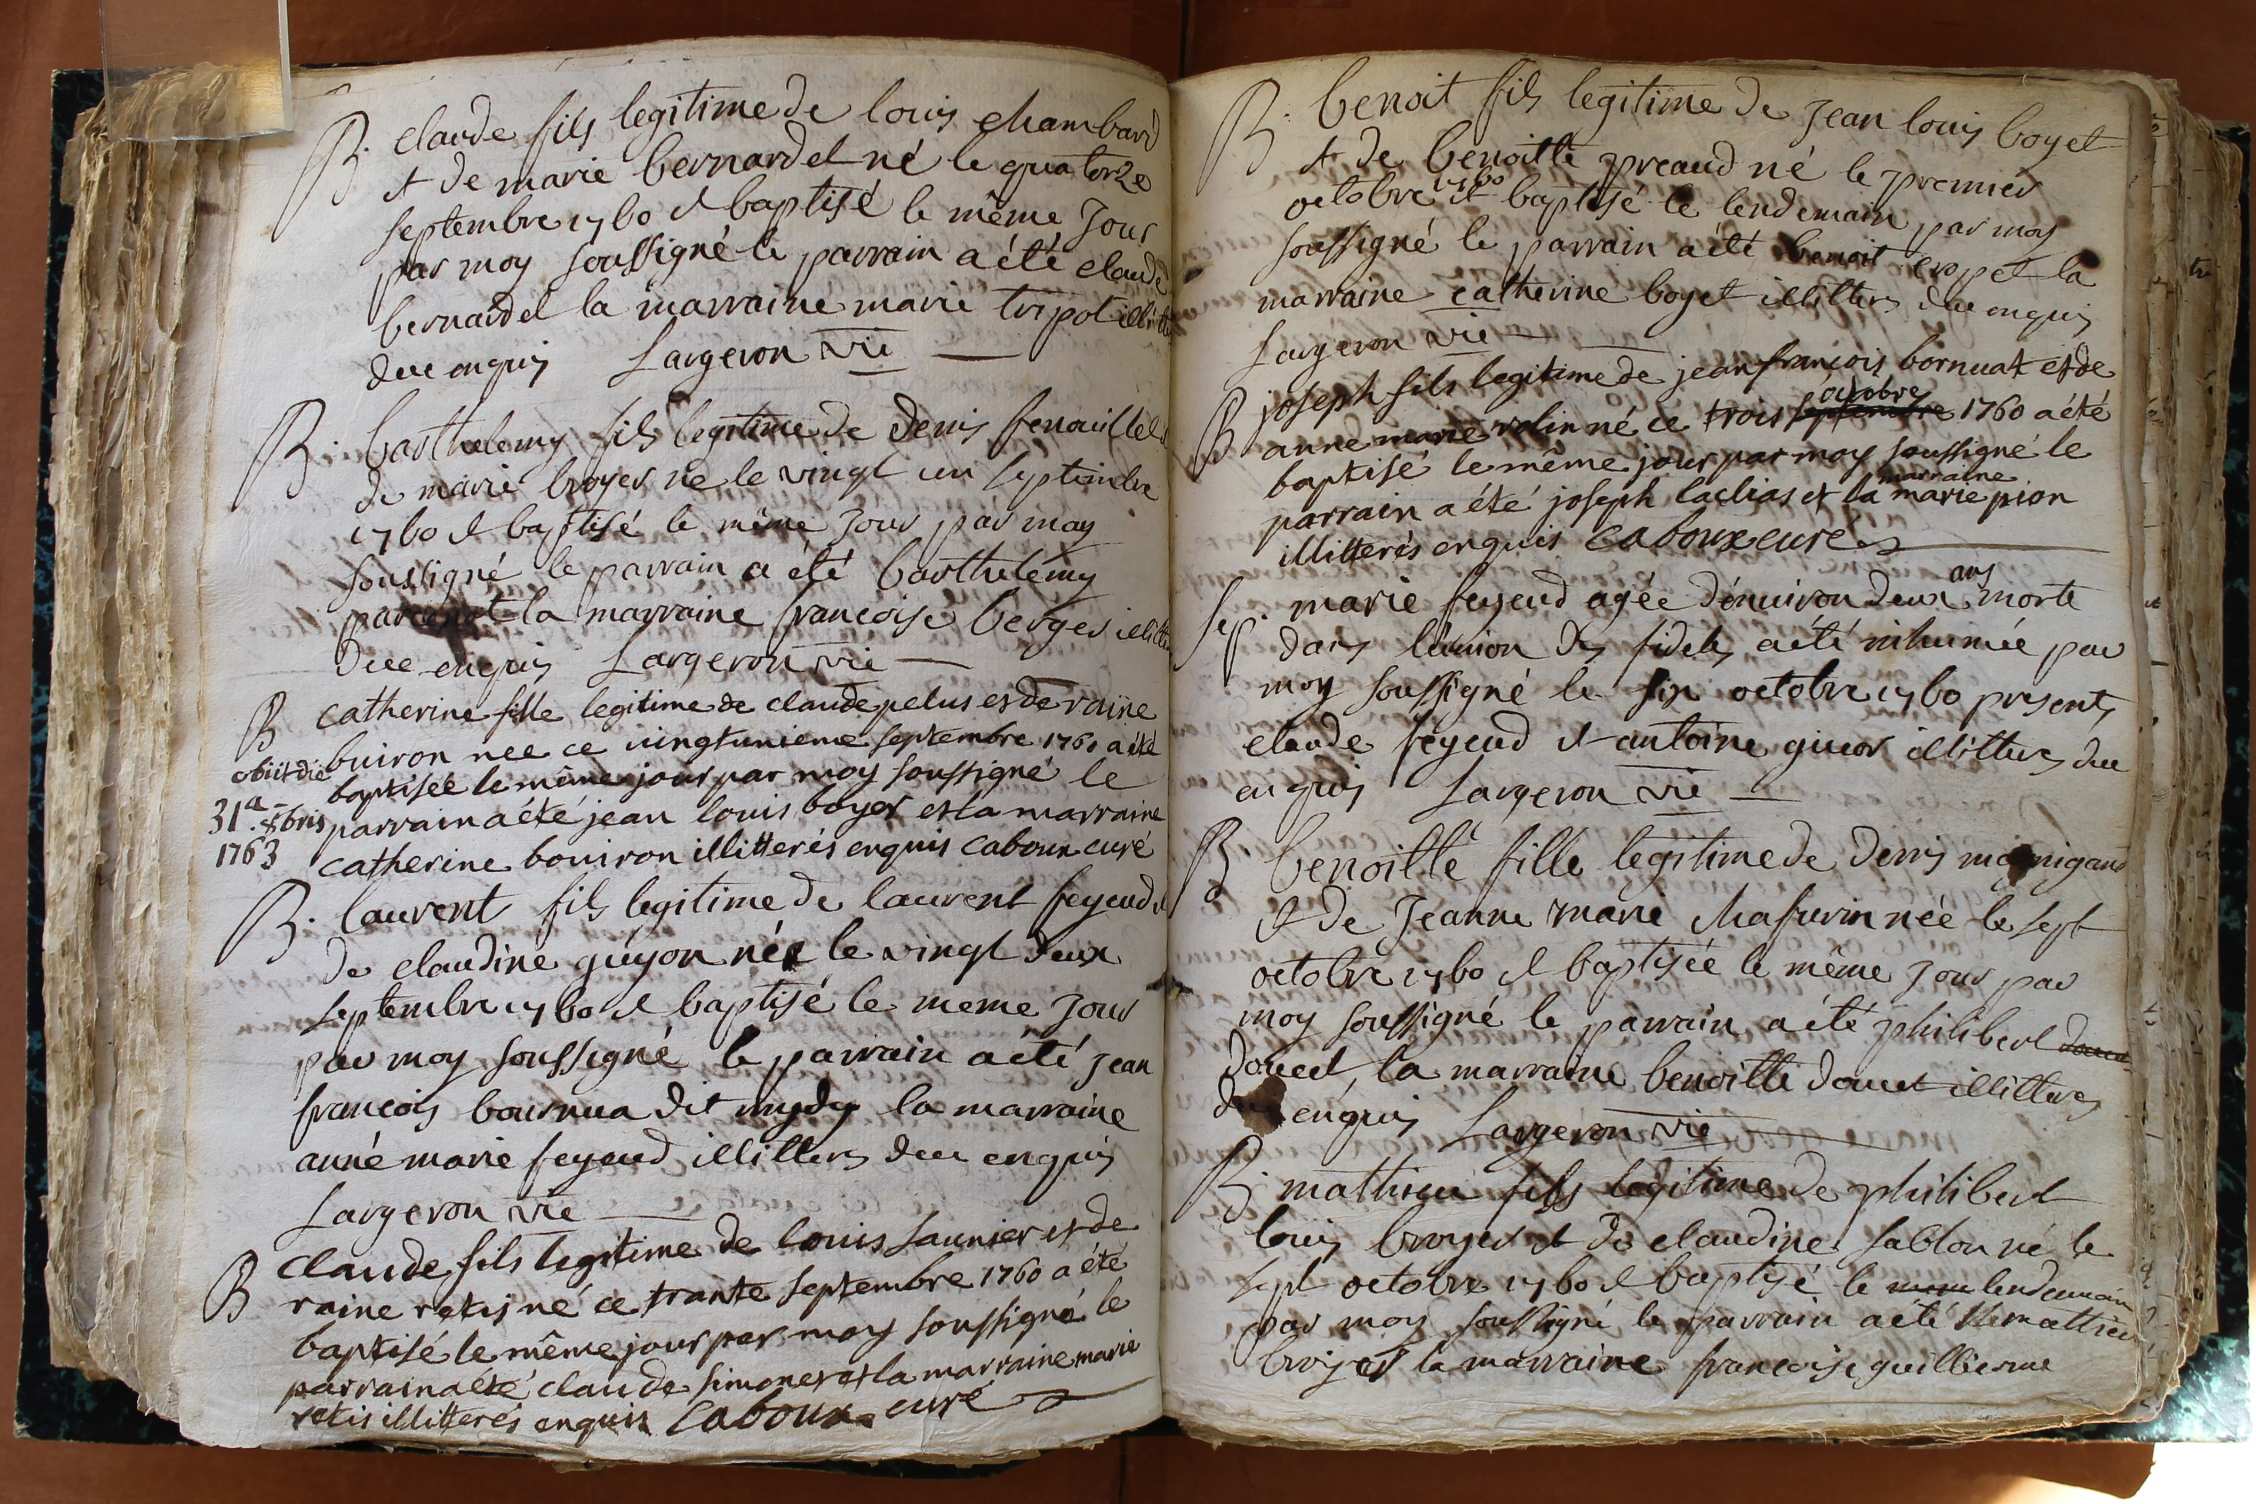 B. claude fils legitime de louis chambard
et de marie bernardet né le quatorze
septembre 1760 et baptisé le même Jour
par moy soussigné le parrain a été claude
bernardet la marraine marie tripot illitt
due enquis Largeron vic
B. barthelemy fils legitime de denis fenaillet
de marie broyer né le vingt un septembre
1760 et baptisé le même Jour par moy
soussigné le parrain a été barthelémy
la marraine francoise berger illitt
due enquis Largeron vic
B catherine fille legitime de claude pelus et de raine
buiron née ce vingtunieme septembre 1760 a été
obiit die
baptisée le même jour par moy soussigné le
31a 8bris
parrain a été jean louis boyer et la marraine
1763
catherine bouiron illitterés enquis caboux curé
B. laurent fils legitime de laurent feyeud et
de claudine guyon né le vingt deux
septembre 1760 et baptisé le meme Jour
par moy soussigné le parrain a été jean
francois bournua dit mydy la marraine
anne marie feyeud illitteres due enquis
Largeron vic
B claude fils legitime de louis saunier et de
raine retis né ce trante septembre 1760 a été
baptisé le même jour par moy soussigné le
parrain a été claude simonet et la marraine marie
retis illitterés enquis caboux curé
B. benoit fils legitime de Jean louis boyet
et de benoitte preaud né le premier
octobre 1760 et baptisé le lendemain par moy
soussigné le parrain a été benoit la
marraine catherine boyet illitters due enquis
Largeron vic
B joseph fils legitime de jean françois bornuat et de
anne marie rolin né ce trois septembre octobre 1760 a été
baptisé le même jour par moy soussigné le
parrain a été joseph laclias et la marraine marie pion
illitterés enquis caboux curé
Sep. marie feyeud agée d'environ deux ans morte
dans l'union des fideles a été inhumée par
moy soussigné le six octobre 1760 presents
claude feyeud et antoine guior illitters due
enquis Largeron vic
B benoitte fille legitime de denis
et de Jeanne marie chafurin née le sept
octobre 1760 et baptisée le même Jour par
moy soussigné le parrain a été philibert
doucet, la marraine benoitte doucet illitteres
due enquis Largeron vic
B. mathieu fils legitime de philibert
louis broyer et de claudine sablon né le
sept octobre 1760 et baptisé le meme lendemain
par moy soussigné le parrain a été mathieu
broyer la marraine francoise guillierme